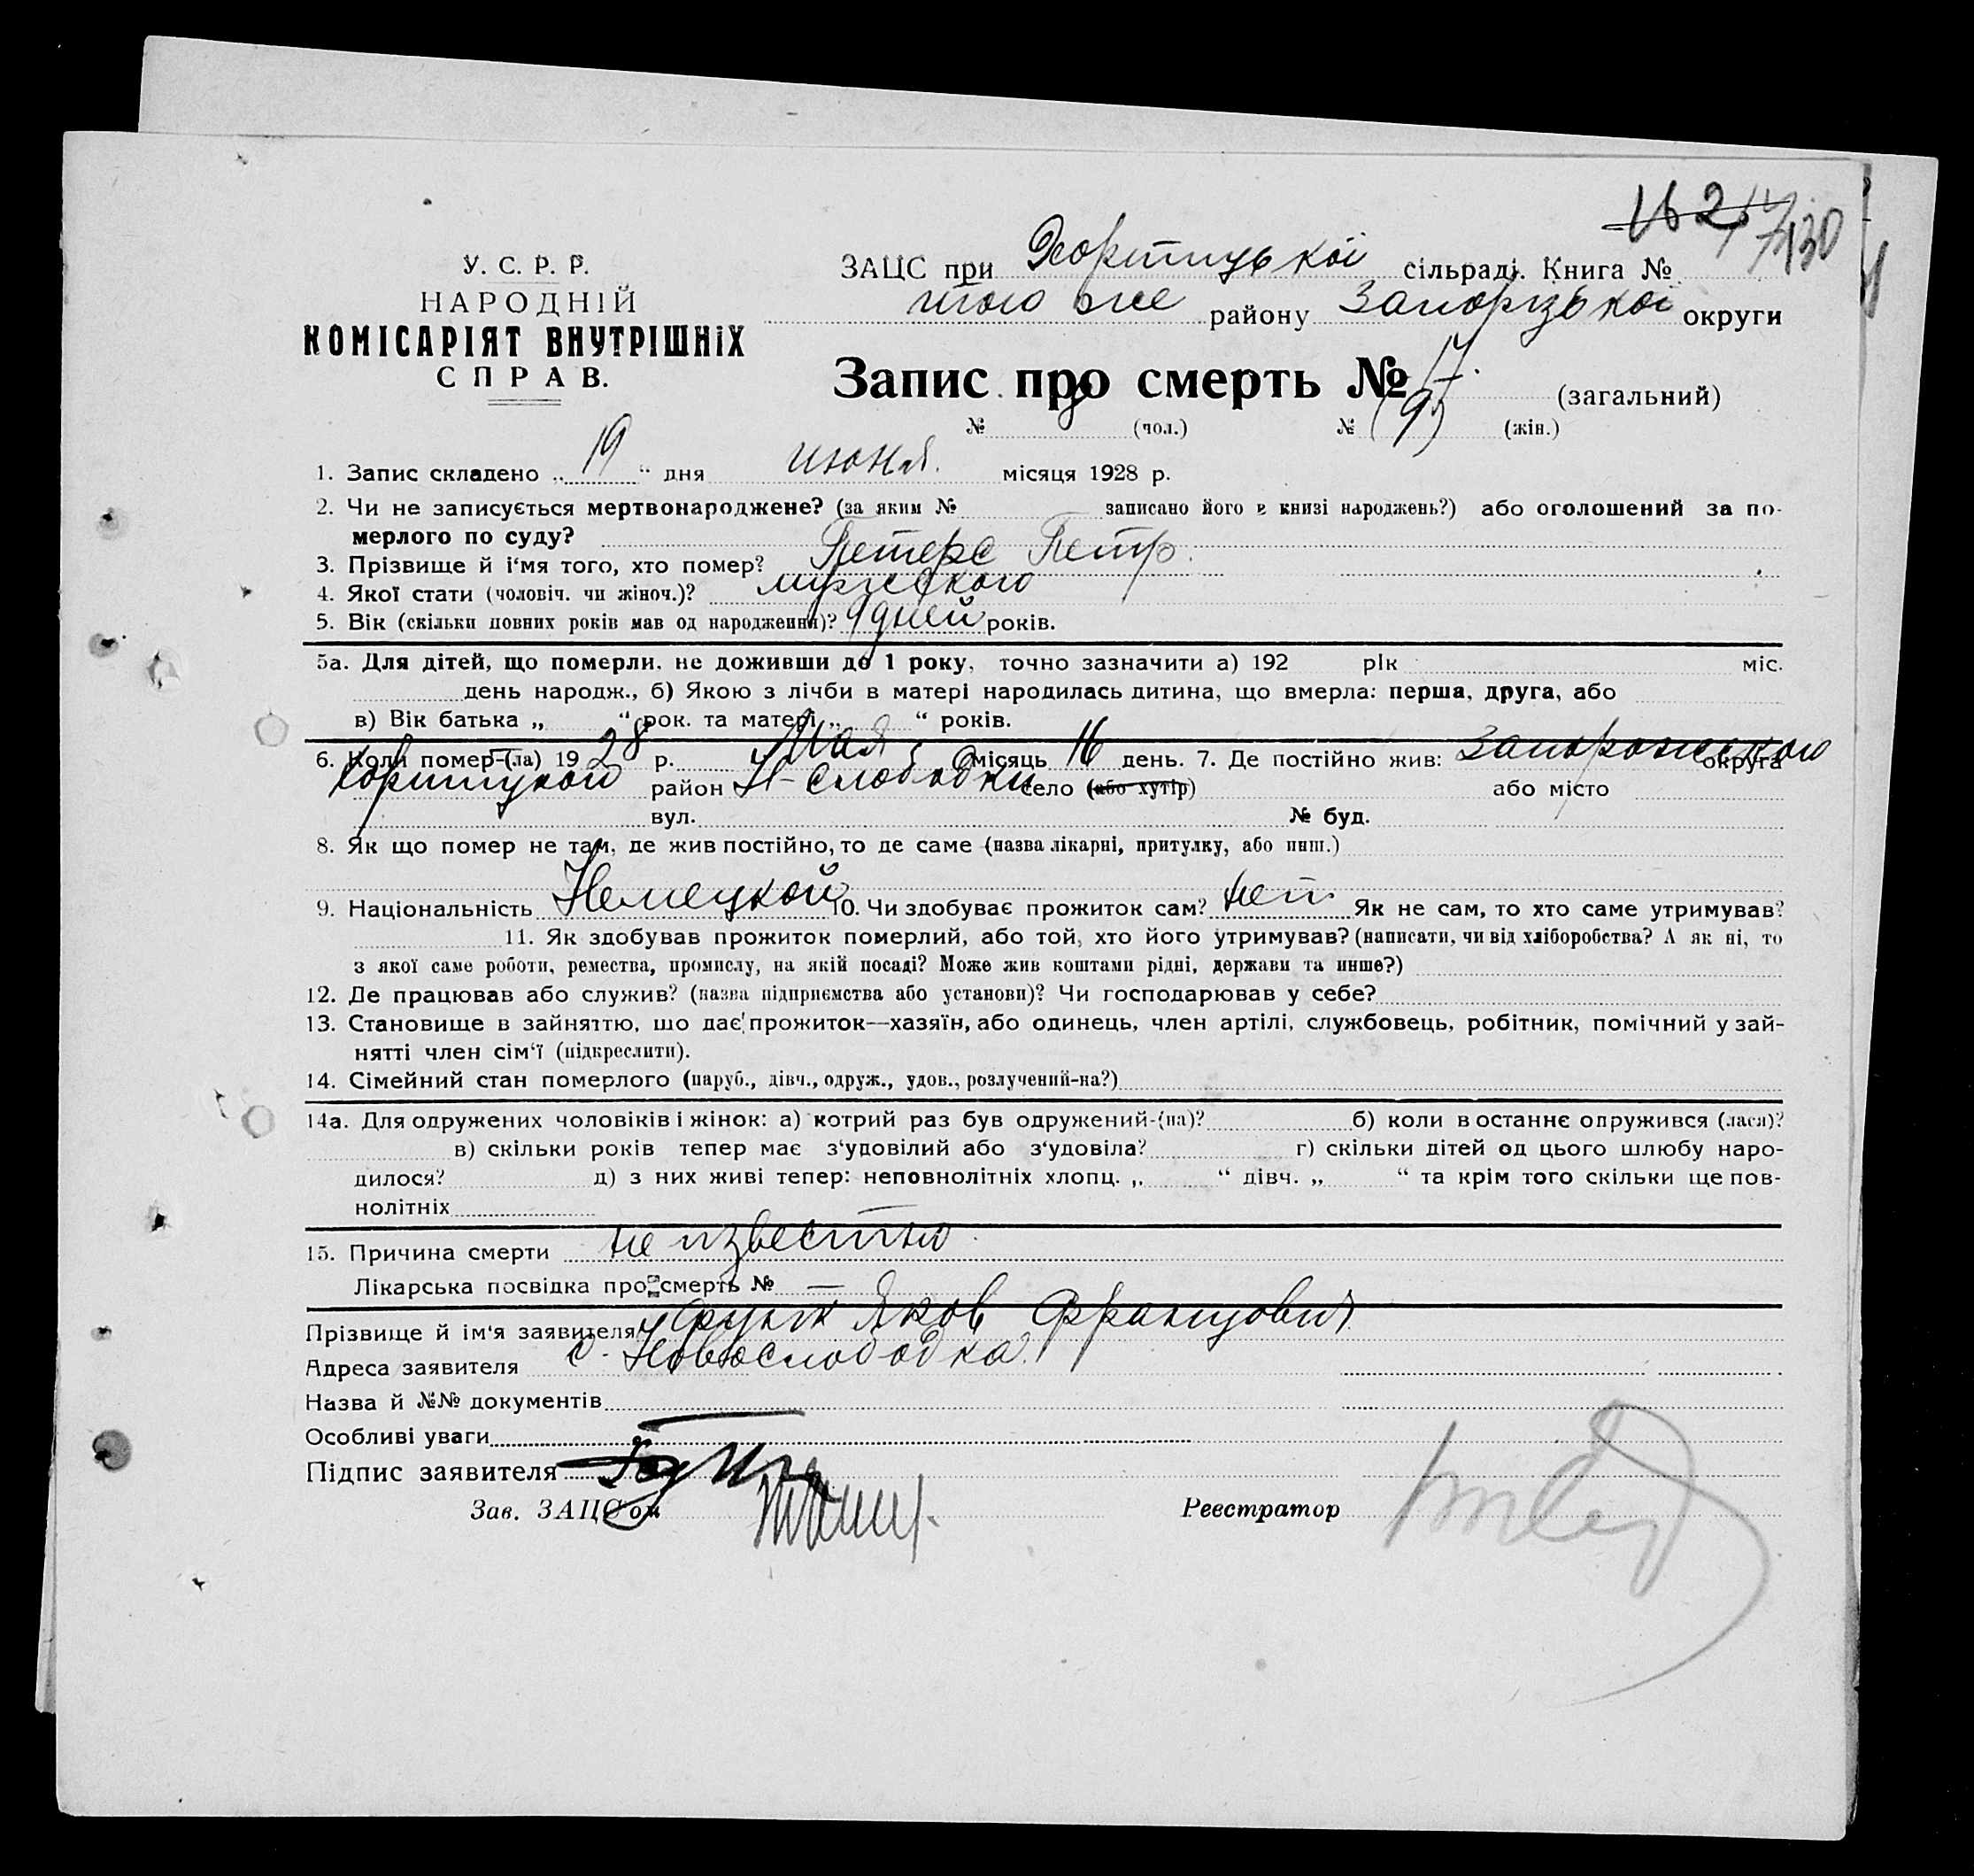 У. С. Р. Р.
НАРОДНІЙ
КОМІСАРІЯТ ВНУТРІШНІХ
СПРАВ.
ЗАЦС при Хортицької сільраді. Книга №
того же району Запорізької округи
Запис про смерть № 17. (загальний)
№ (чол.) № (9) (жін.)
1. Запис складено „ 19 “ дня июня. місяця 1928 р.
2. Чи не записується мертвонароджене? (за яким № записано його в книзі народжень?) або оголошений за по-
мерлого по суду?
3. Прізвище й і‘мя того, хто помер? Петерс Петр.
4. Якої стати (чоловіч. чи жіноч.)? мужского
5. Вік (скільки повних років мав од народження)? 9 дней років.
5а. Для дітей, що померли, не доживши до 1 року, точно зазначити а) 192 рік міс.
день народж., б) Якою з лічби в матері народилась дитина, що вмерла: перша, друга, або
в) Вік батька „ “ рок. та матері „ “ років.
6. Коли помер-(ла) 1928 р. Мая місяць 16 день. 7. Де постійно жив: Запорожского округа
Хортицкой район Н-Слободки село (або хутір) або місто
вул. № буд.
8. Як що помер не там, де жив постійно, то де саме (назва лікарні, притулку, або инш.)
9. Національність Немецкой 10. Чи здобуває прожиток сам? нет Як не сам, то хто саме утримував?
11. Як здобував прожиток померлий, або той, хто його утримував? (написати, чи від хліборобства? А як ні, то
з якої саме роботи, ремества, промислу, на якій посаді? Може жив коштами рідні, держави та инше?)
12. Де працював або служив? (назва підприємства або установи)? Чи господарював у себе?
13. Становище в зайняттю, шо дає прожиток—хазяїн, або одинець, член артілі, службовець, робітник, помічний у зай-
нятті член сім‘ї (підкреслити).
14. Сімейний стан померлого (паруб., дівч., одруж., удов., розлучений-на?)
14а. Для одружених чоловіків і жінок: а) котрий раз був одружений-(на)? б) коли в останнє одружився (лася)?
в) скільки років тепер має з‘удовілий або з‘удовіла? г) скільки дітей од цього шлюбу наро-
дилося? д) з них живі тепер: неповнолітніх хлопц. „ “ дівч. „ “ та крім того скільки ще пов-
нолітніх
15. Причина смерти не известно
Лікарська посвідка про смерть № —
Прізвище й ім‘я заявителя Функ Яков Францович
Адреса заявителя с. Новослободка.
Назва й №№ документів
Особливі уваги
Підпис заявителя
Зав. ЗАЦС‘ом
Реєстратор